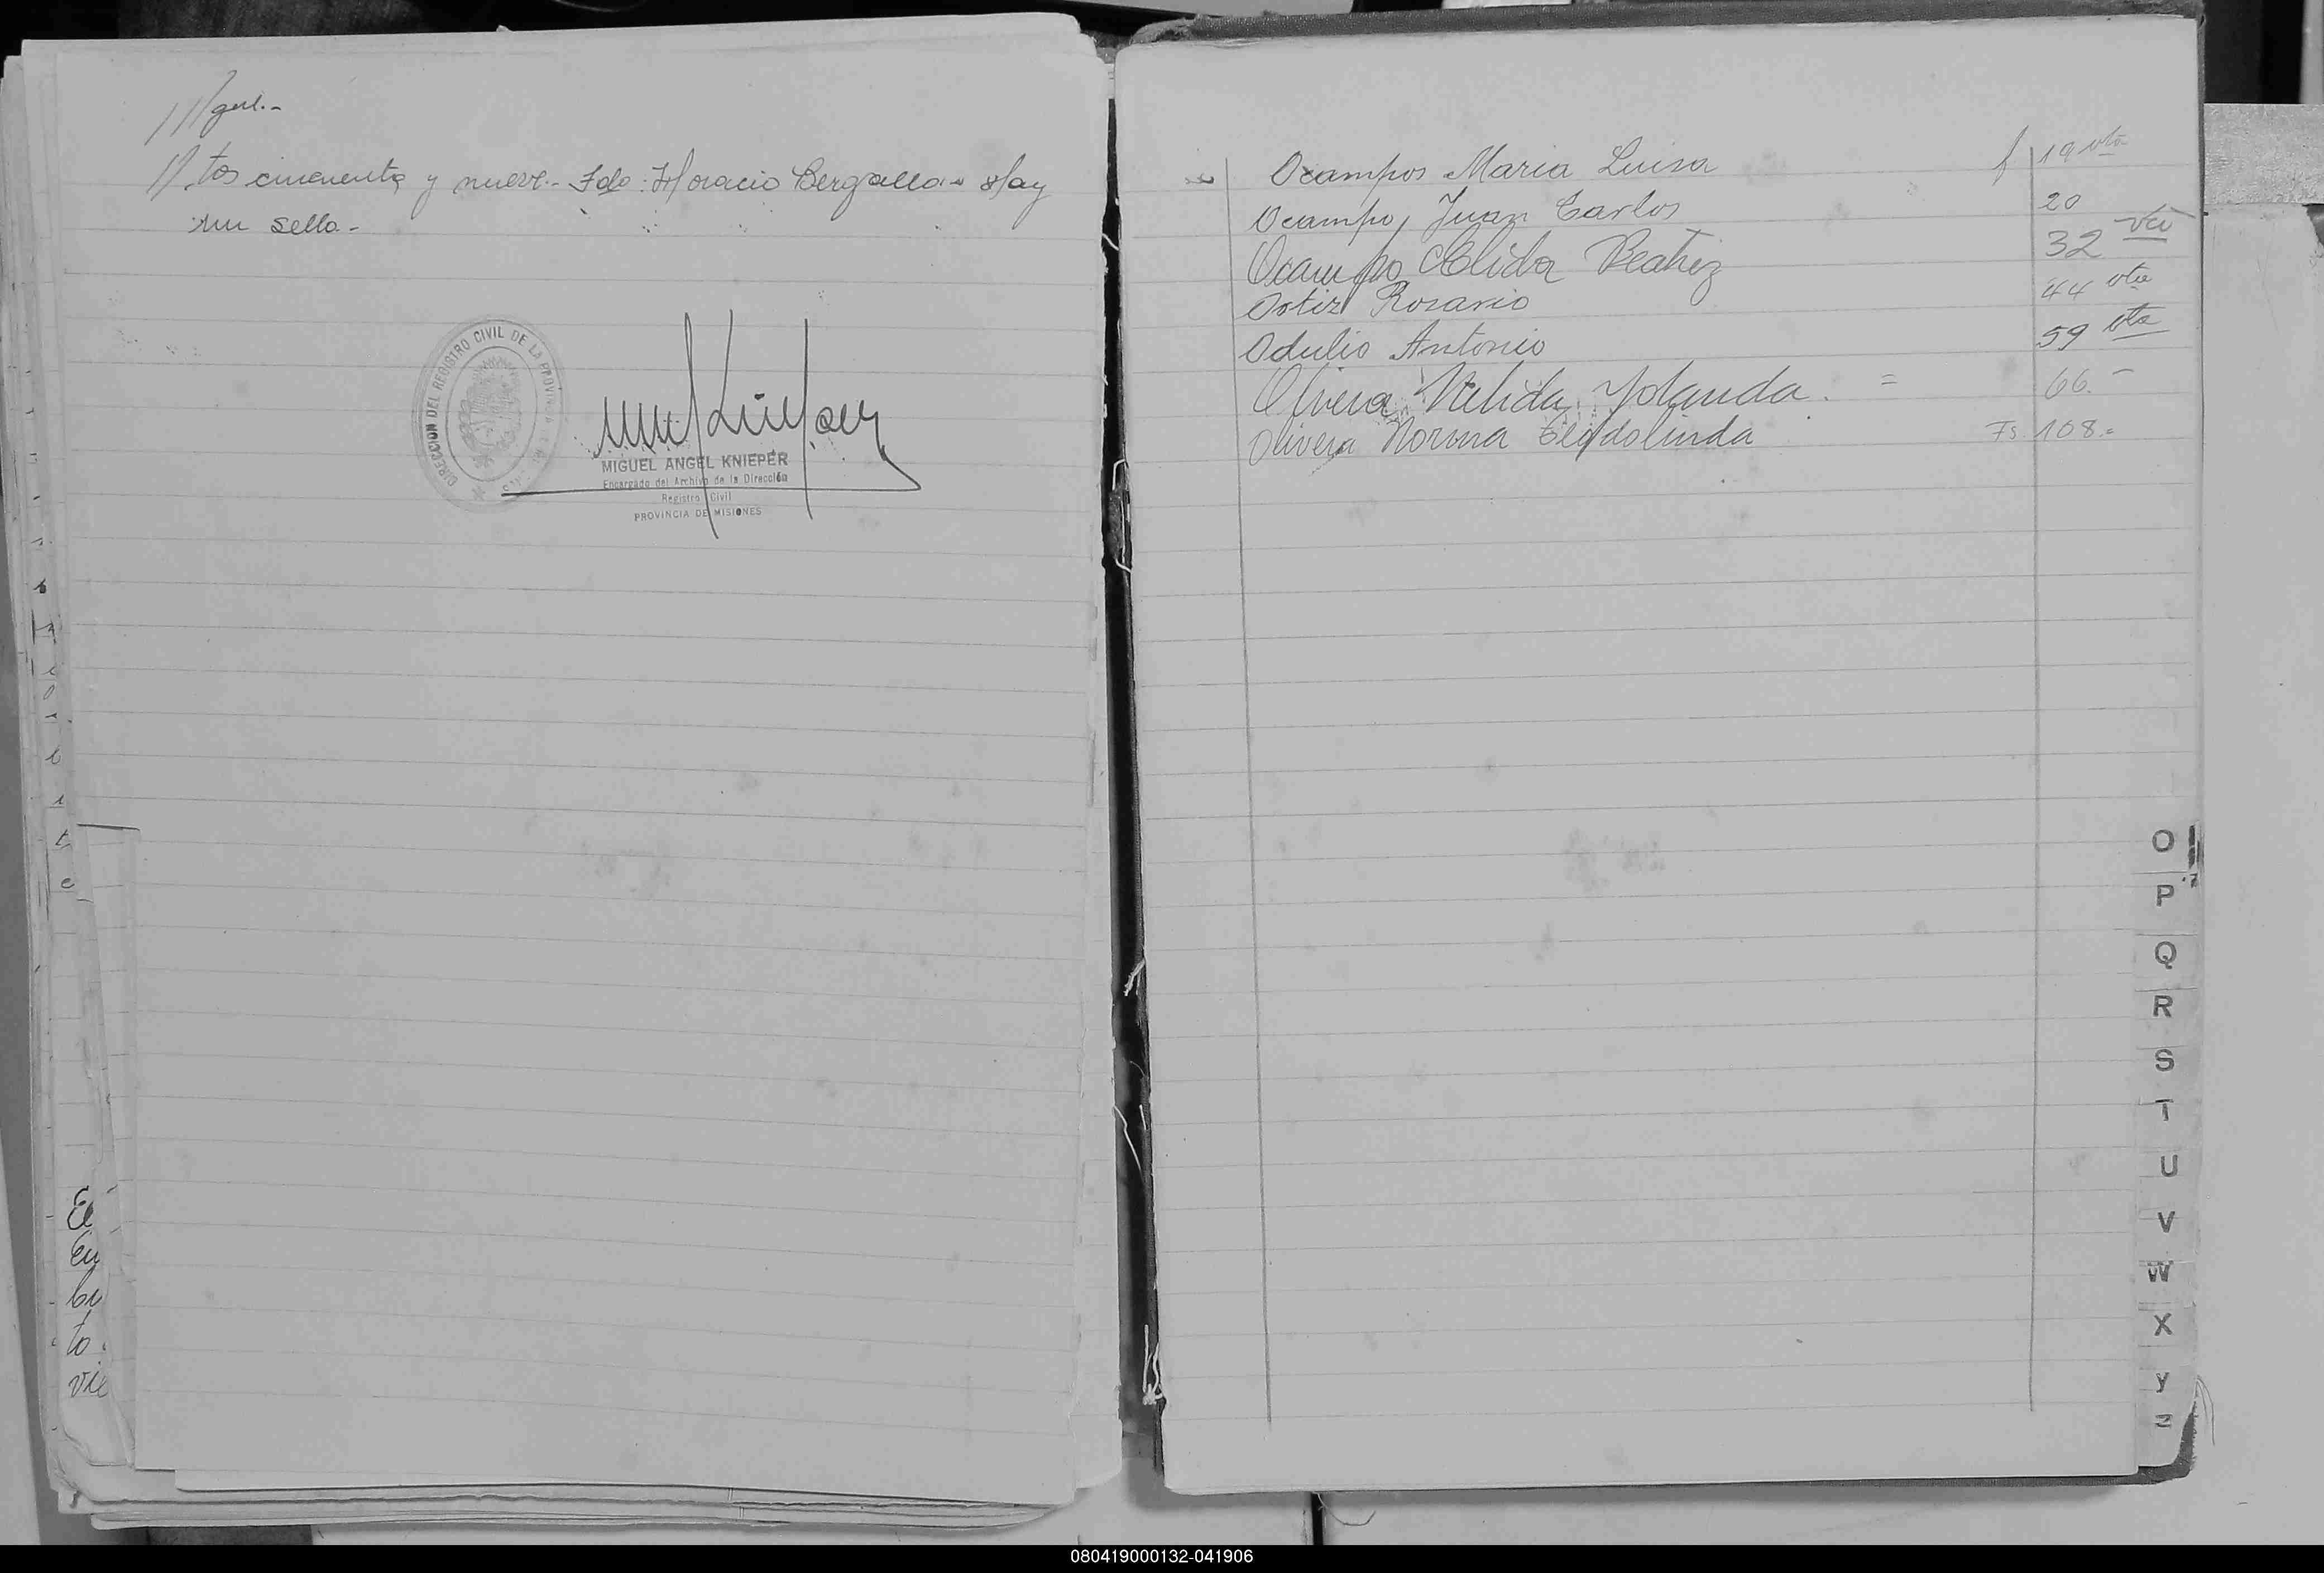 ///gul.-
//.tos cincuenta y nueve.- Fdo: Horacio Bergallo.- Hay
un sello.-
DIRECCION DEL REGISTRO CIVIL DE LA PROVINCIA
MIGUEL ANGEL KNIEPER
Encargado del Archivo de la Dirección
Registro Civil
PROVINCIA DE MISIONES
El
En
bu
to
vie
Ocampos Maria Luisa f 19 vta
Ocampo, Juan Carlos 20
Ocampo Elida Beatriz 32 vta
Ortiz Rosario 44 vta
Odulio Antonio 59 vta
Olivera Nelida Yolanda. = 66.-
Olivera Norma Teodolinda Fs 108.=
O
P
Q
R
S
T
U
V
W
X
y
Z
080419000132-041906